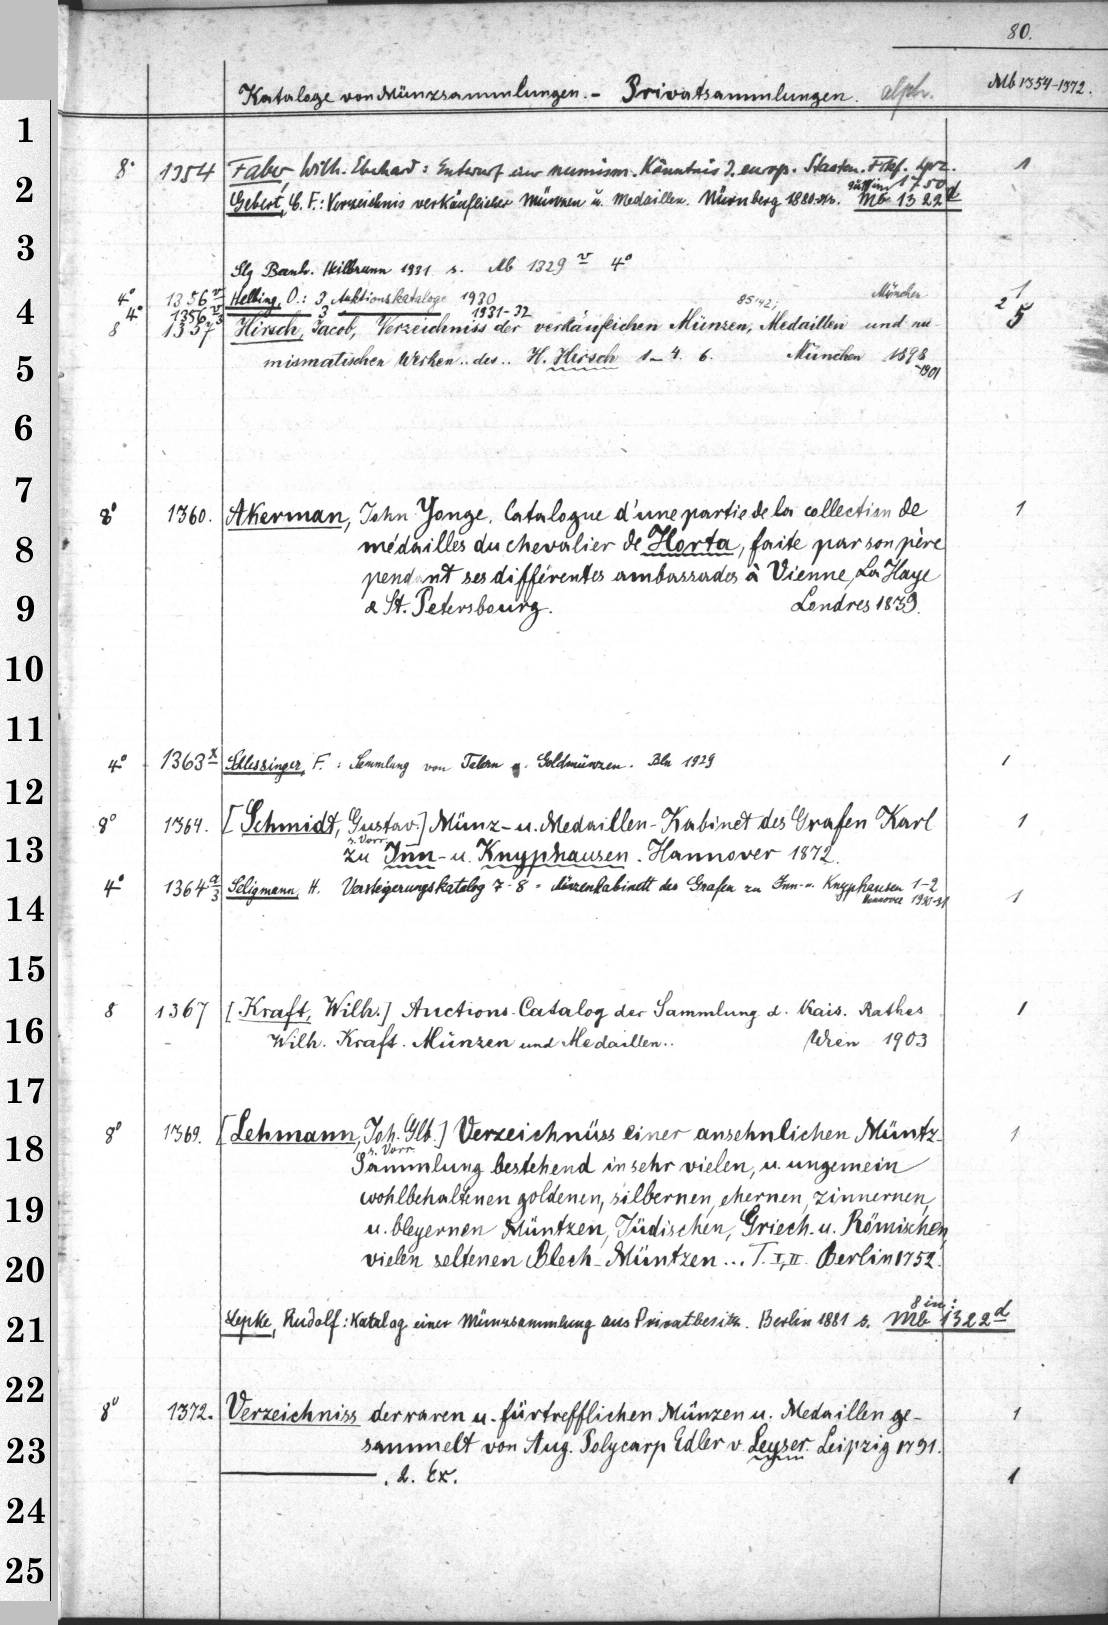 80.
Kataloge von Münzsammlungen. - Privatsammlungen. alph. Mb 1354-1372.
1
8° 1354 Faber, Wilh. Eberhard: Entwurf einer numism. Känntnis d. europ. Staaten. Frkf. Lpz. 1
1750
2
Gebert, C. F.: Verzeichnis verkäuflicher Münzen u. Medaillen. Nürnberg 1880 s. Mb 1322 d
3
Slg Bank. Heilbrunn 1931 s. Mb 1329 v 4°
4° 1356 v Helbing, O.: 3 Auktionskataloge 1930 München 1
4
4° 1356 v/3 3 1931-32 2
8 1357 Hirsch, Jacob, Verzeichniss der verkäuflichen Münzen, Medaillen und nu- 5
5
mismatischen Werken .. des .. H. Hirsch 1-4. 6. München 1898
-1901
6
7
8° 1360. Akerman, John Yonge. Catalogue d'une partie de la collection de 1
8
médailles du chevalier de Horta, faite par son père
pendant ses différentes ambassades à Vienne, La Haye
9
& St. Petersbourg. Londres 1839.
10
11
4° 1363 x Schlessinger, F. : Sammlung von Talern u. Goldmünzen. Bln 1929 1
12
8° 1364. [Schmidt, Gustav.] Münz- u. Medaillen-Kabinet des Grafen Karl 1
s. Vorr.
13
zu Inn- u. Knyphausen. Hannover 1872.
4° 1364 a/3 Seligmann, H. Versteigerungskatalog 7-8 = Münzenkabinett des Grafen zu Inn- u. Knyphausen 1-2 1
Hannover 1930-31
14
15
8 1367 [Kraft, Wilh.] Auctions-Catalog der Sammlung d. Kais. Rathes 1
16
Wilh. Kraft. Münzen und Medaillen.. Wien 1903
17
8° 1369. [Lehmann, Joh. Glb.] Verzeichnüss einer ansehnlichen Müntz- 1
s. Vorr.
18
Sammlung bestehend in sehr vielen, u. ungemein
19
wohlbehaltenen goldenen, silbernen, ehernen, zinnernen,
u. bleyernen Müntzen, Jüdischen, Griech. u. Römischen,
20
vielen seltenen Blech-Müntzen ... T. I, II. Berlin 1752.
8 in:
21
Lepke, Rudolf: Katalog einer Münzsammlung aus Privatbesitz. Berlin 1881 s. Mb 1322 d
22
8° 1372. Verzeichniss der raren u. fürtrefflichen Münzen u. Medaillen ge- 1
23
sammelt von Aug. Polycarp Edler v. Leyser. Leipzig 1791.
. 2. Ex. 1
24
25